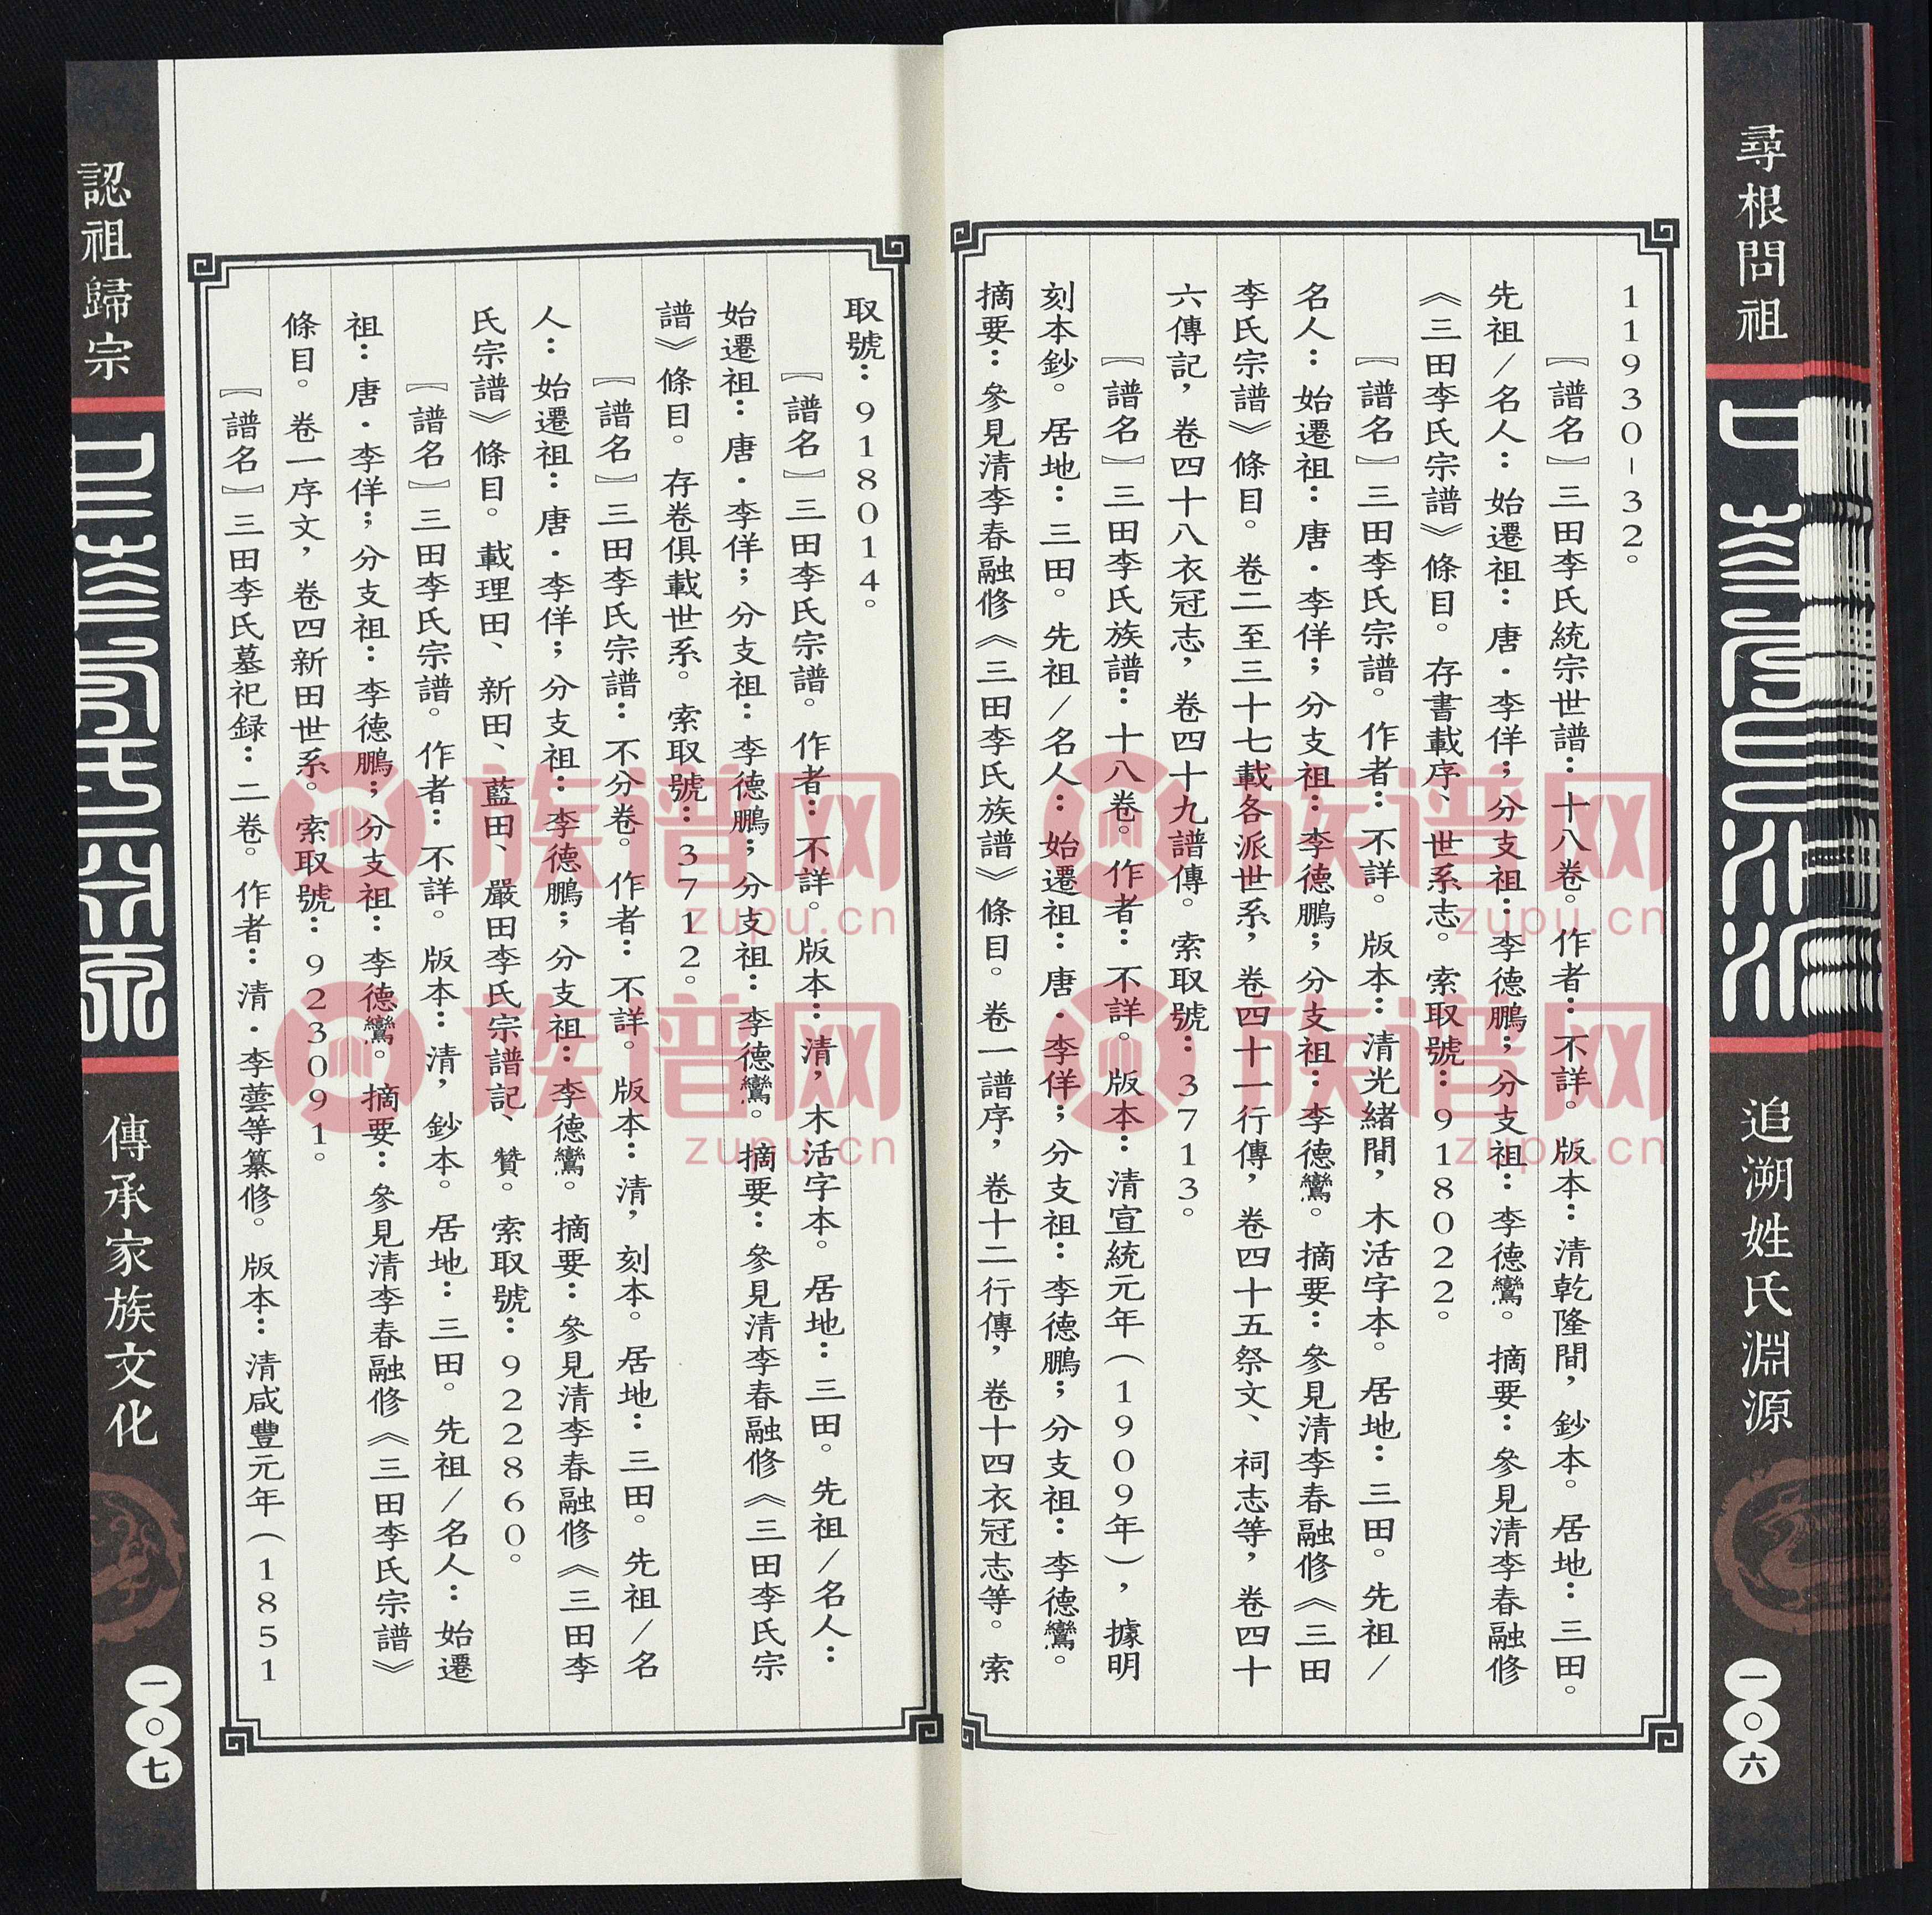 尋根問祖
追溯姓氏淵源
一〇六
11930-32。
［譜名］三田李氏統宗世譜：十八卷。作者：不詳。版本：清乾隆間，鈔本。居地：三田。
先祖/名人：始遷祖：唐·李佯；分支祖：李德鵬；分支祖：李德鸞。摘要：參見清李春融修
《三田李氏宗譜》條目。存書載序、世系志。索取號：918022。
［譜名］三田李氏宗譜。作者：不詳。版本：清光緒間，木活字本。居地：三田。先祖/
名人：始遷祖：唐·李佯；分支祖：李德鵬；分支祖：李德鸞。摘要：參見清李春融修《三田
李氏宗譜》條目。卷二至三十七載各派世系，卷四十一行傳，卷四十五祭文、祠志等，卷四十
六傳記，卷四十八衣冠志，卷四十九譜傳。索取號：3713。
［譜名］三田李氏族譜：十八卷。作者：不詳。版本：清宣統元年（1909年），據明
刻本鈔。居地：三田。先祖/名人：始遷祖：唐·李佯；分支祖：李德鵬；分支祖：李德鸞。
摘要：參見清李春融修《三田李氏族譜》條目。卷一譜序，卷十二行傳，卷十四衣冠志等。索
取號：918014。
［譜名］三田李氏宗譜。作者：不詳。版本：清，木活字本。居地：三田。先祖/名人：
始遷祖：唐·李佯；分支祖：李德鵬；分支祖：李德鸞。摘要：參見清李春融修《三田李氏宗
譜》條目。存卷俱載世系。索取號：3712。
［譜名］三田李氏宗譜：不分卷。作者：不詳。版本：清，刻本。居地：三田。先祖/名
人：始遷祖：唐·李佯；分支祖：李德鵬；分支祖：李德鸞。摘要：參見清李春融修《三田李
氏宗譜》條目。載理田、新田、藍田、嚴田李氏宗譜記、贊。索取號：922860。
［譜名］三田李氏宗譜。作者：不詳。版本：清，鈔本。居地：三田。先祖/名人：始遷
祖：唐·李佯；分支祖：李德鵬；分支祖：李德鸞。摘要：參見清李春融修《三田李氏宗譜》
條目。卷一序文，卷四新田世系。索取號：923091。
［譜名］三田李氏墓祀録：二卷。作者：清·李蕓等纂修。版本：清咸豐元年（1851
認祖歸宗
傳承家族文化
一〇七
族谱网
zupu.cn
族谱网
zupu.cn
族谱网
zupu.cn
族谱网
zupu.cn